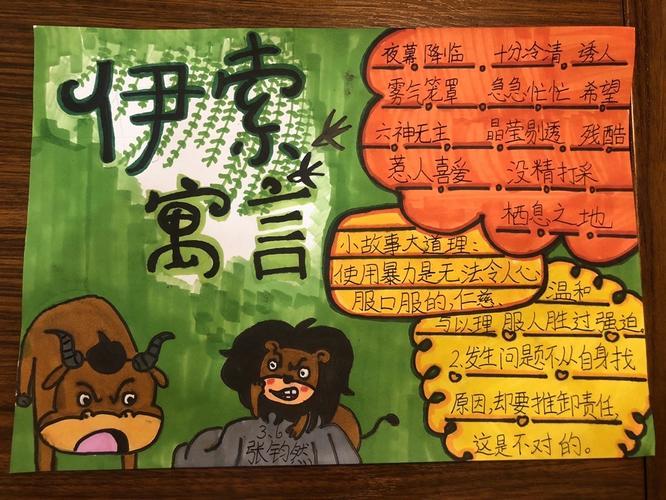 伊索
寓言
夜幕降临 十分冷清 诱人
雾气笼罩 急急忙忙 希望
六神无主 晶莹剔透 残酷
惹人喜爱 没精打采
栖息之地
小故事大道理:
使用暴力是无法令人心
服口服的,仁慈、温和
与以理服人胜过强迫
2.发生问题不从自身找
原因,却要推卸责任,
这是不对的。
3、6
张钧然